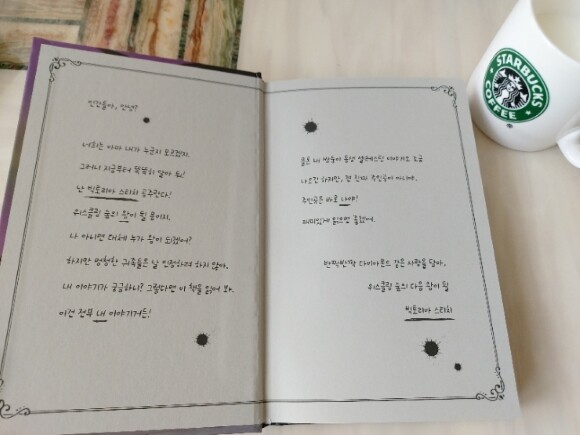 인간들아, 안녕?
너희는 아마 내가 누군지 모르겠지.
그러니 지금부터 똑똑히 알아 둬!
난 빅토리아 스티치 공주란다!
위스클링 숲의 왕이 될 몸이지.
나 아니면 대체 누가 왕이 되겠어?
하지만 멍청한 귀족들은 날 인정하려 하지 않아.
내 이야기가 궁금하니? 그렇다면 이 책을 읽어 봐.
이건 전부 내 이야기거든!
물론 내 쌍둥이 동생 셀레스틴 이야기도 조금
나오긴 하지만, 걘 진짜 주인공이 아니야.
주인공은 바로 나야!
재미있게 읽으면 좋겠어.
반짝반짝 다이아몬드 같은 사랑을 담아,
위스클링 숲의 다음 왕이 될
빅토리아 스티치
STARBUCKS
COFFEE